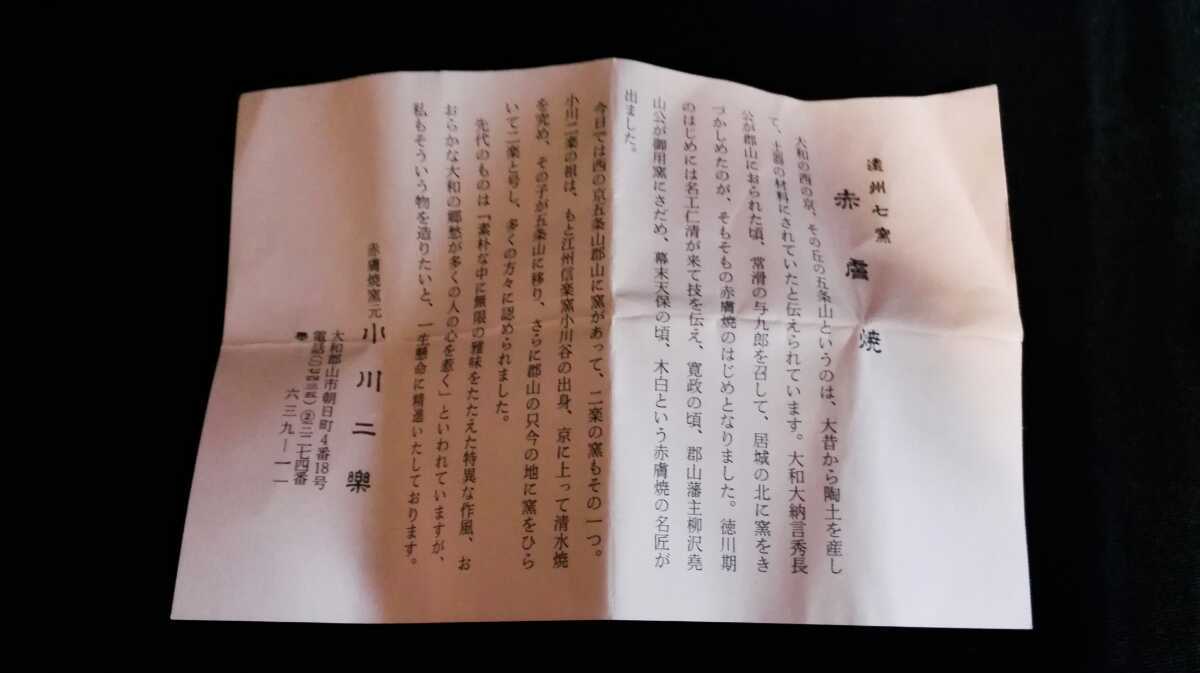 遠州七窯
赤膚焼
大和の西の京、その丘の五条山というのは、大昔から陶土を産し
て、土器の材料にされていたと伝えられています。大和大納言秀長
公が郡山におられた頃、常滑の与九郎を召して、居城の北に窯をき
づかしめたのが、そもそもの赤膚焼のはじめとなりました。徳川期
のはじめには名工仁清が来て技を伝え、寛政の頃、郡山藩主柳沢堯
山公が御用窯にさだめ、幕末天保の頃、木白という赤膚焼の名匠が
出ました。
今日では西の京五条山郡山に窯があって、二楽の窯もその一つ。
小川二楽の祖は、もと江州信楽窯小川谷の出身、京に上って清水焼
を究め、その子が五条山に移り、さらに郡山の只今の地に窯をひら
いて二楽と号し、多くの方々に認められました。
先代のものは「素朴な中に無限の雅味をたたえた特異な作風、お
おらかな大和の郷愁が多くの人の心を惹く」といわれていますが、
私もそういう物を造りたいと、一生懸命に精進いたしております。
赤膚焼窯元 小川二樂
大和郡山市朝日町4番18号
電話(〇七四三五)②三二七四番
六三九―一一